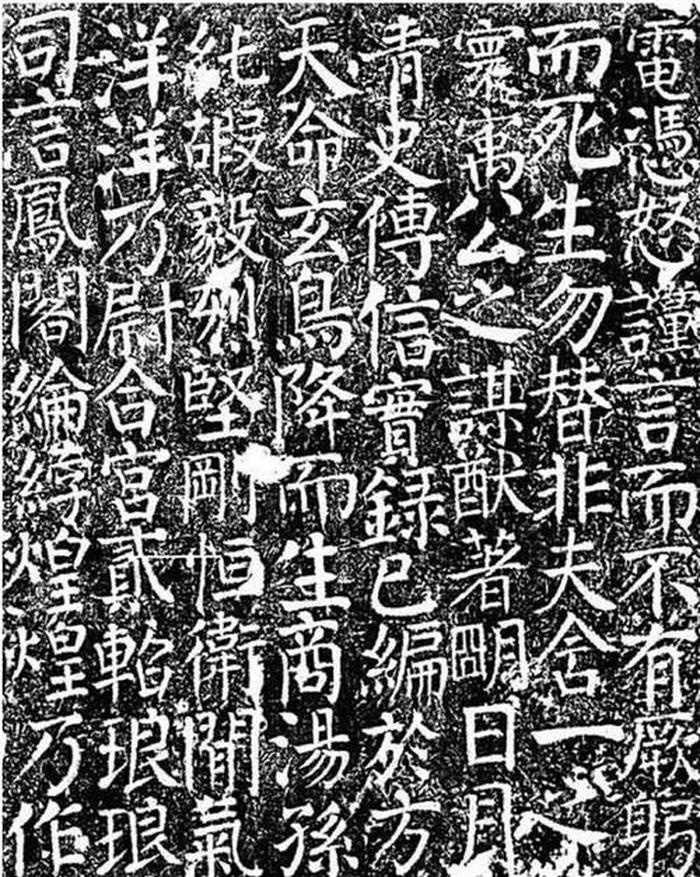 電憑怒謹言而不有厥躬
而死生勿替非夫舍一
寰寓公之謀猷著明日月
青史傳信實錄已編於方
天命玄鳥降而生商湯孫
純嘏毅烈堅剛恒衛間氣
洋洋乃尉合宮貳軺琅琅
司言鳳閣綸綍煌煌乃作